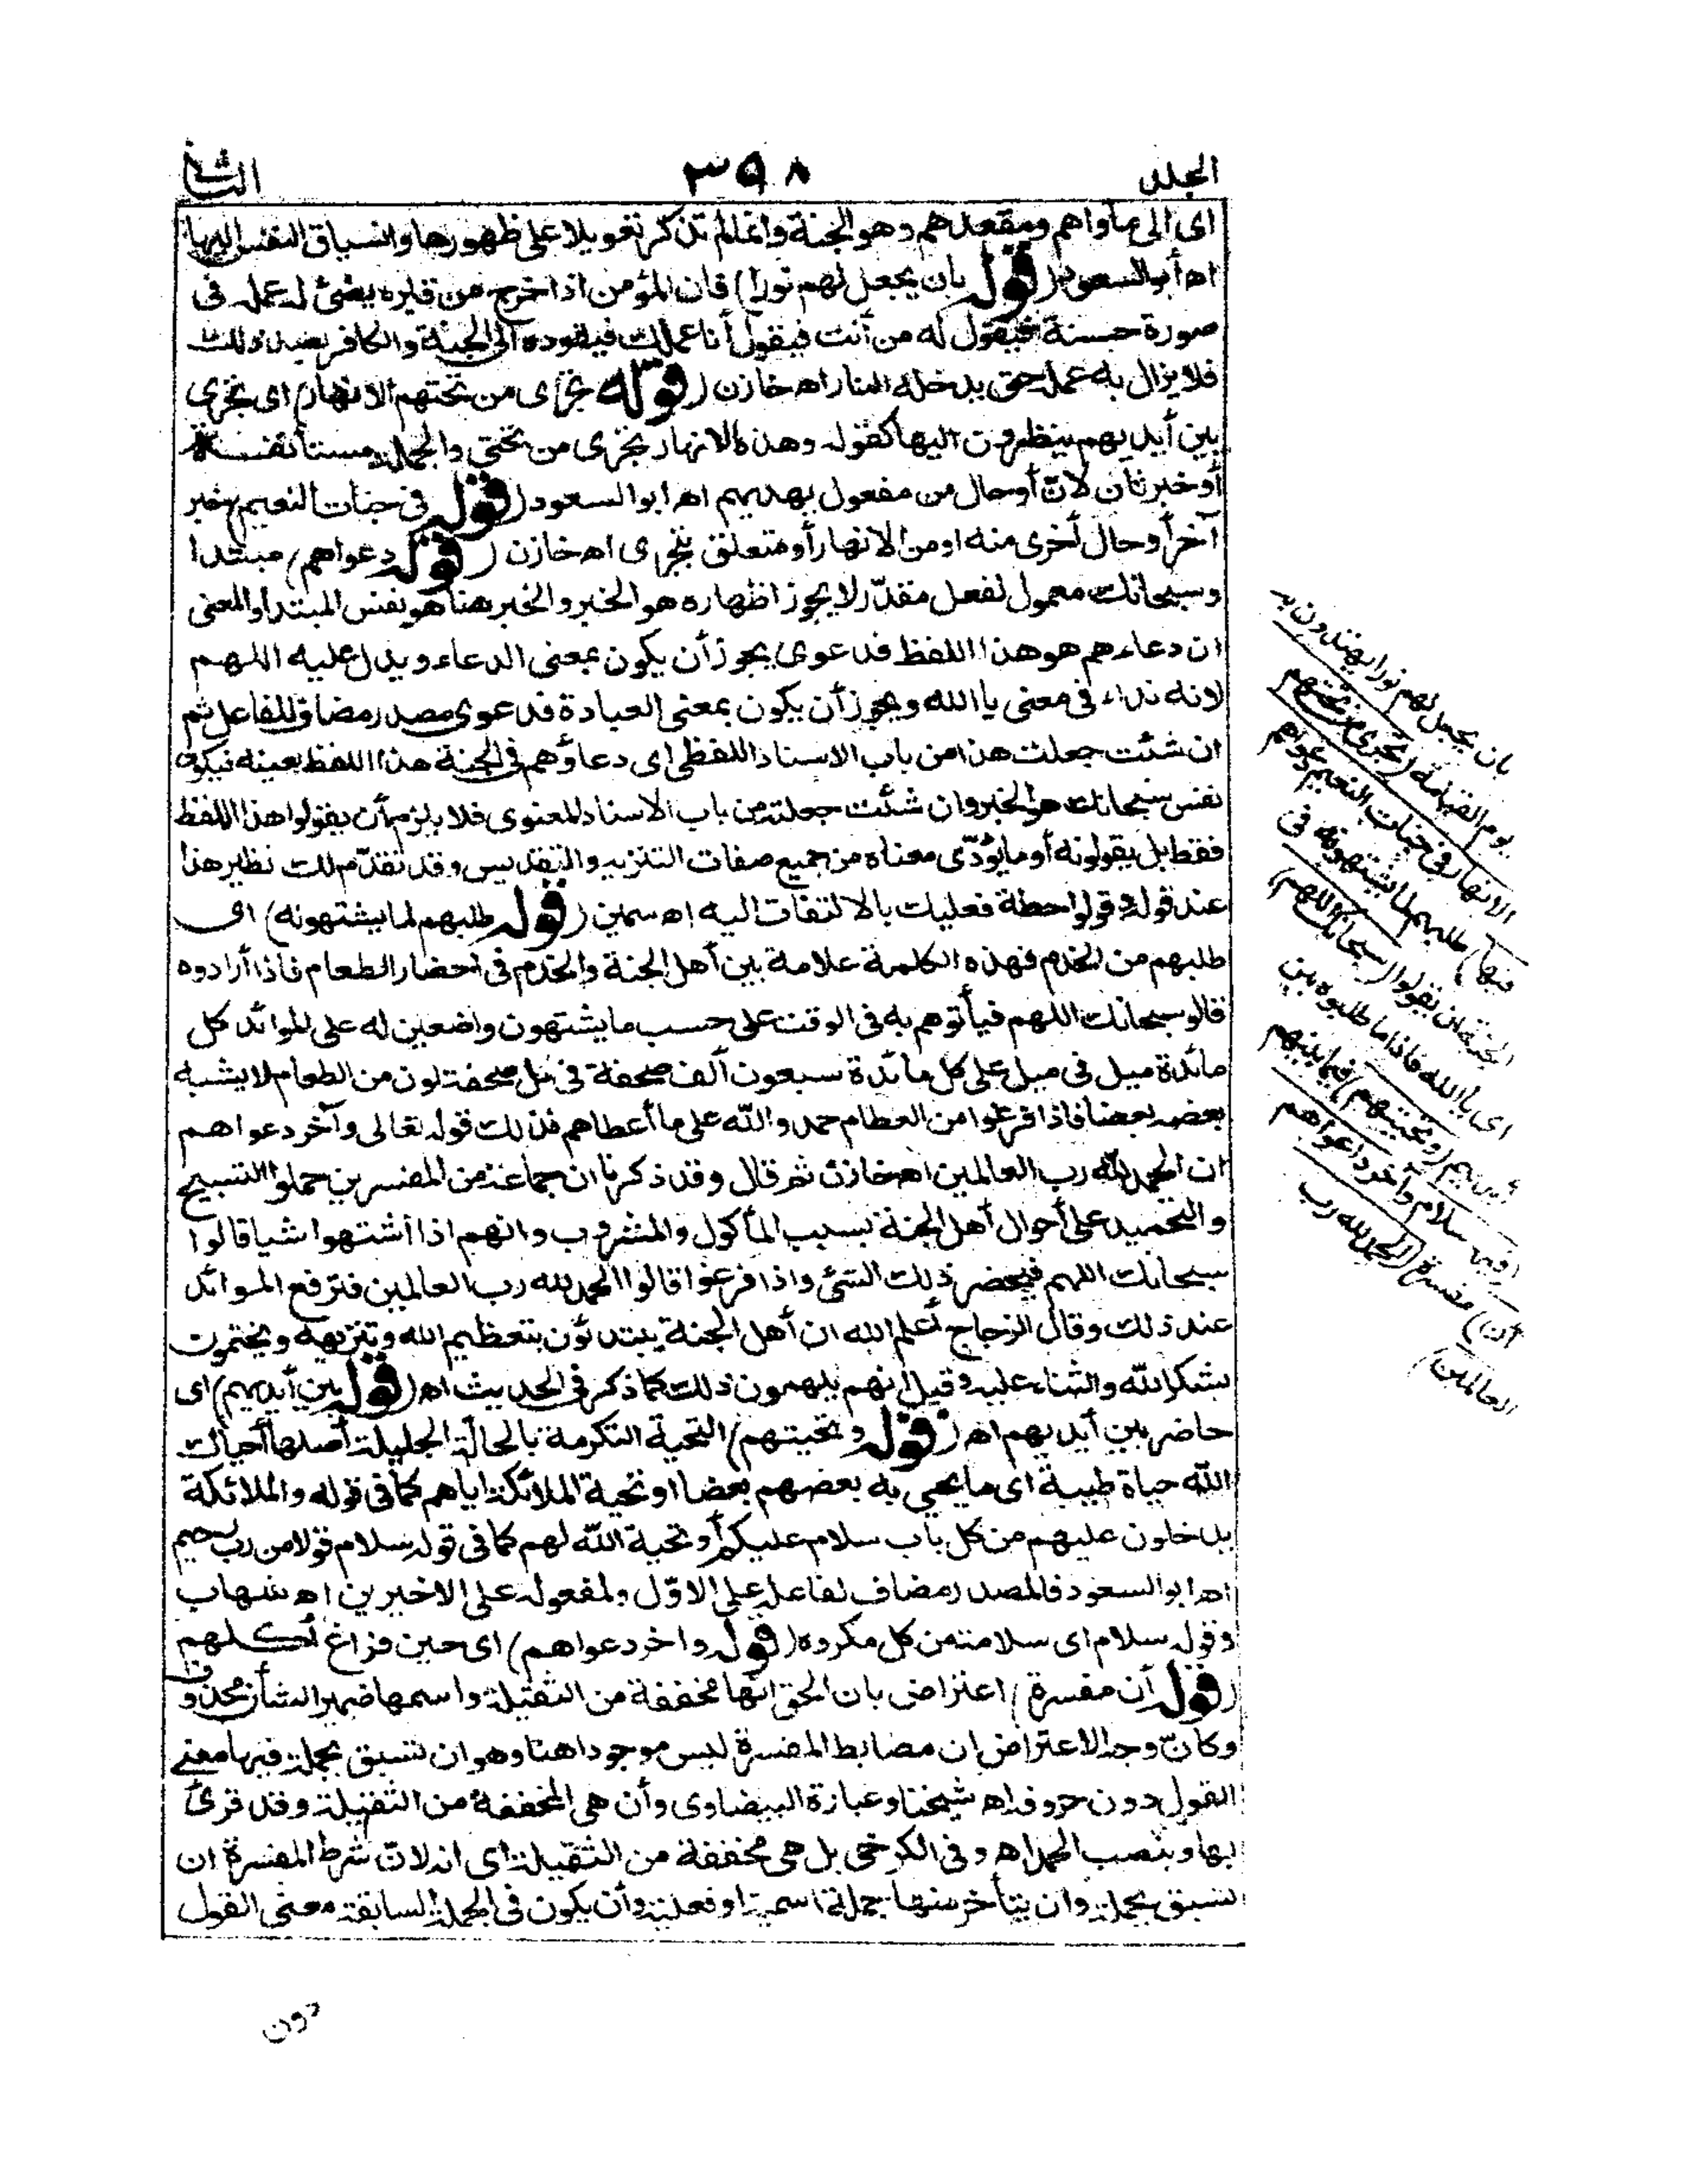 الجلد ٣٩٨ الثانى
اى الى مأواهم ومقعدهم وهو الجنة وانما لم تذكر تعويلا على ظهورها وانسياق النفس اليها
اه أبو السعود (قوله بان يجعل لهم نورا) فان المؤمن اذا خرج من قبره يضئ له عمله فى
صورة حسنة فيقول له من أنت فيقول أنا عملك فيقوده الى الجنة والكافر بضد ذلك
فلا يزال به عمله حتى يدخله النار اه خازن (قوله تجرى من تحتهم الانهار) اى تجرى
بين أيديهم ينظرون اليها كقوله وهذه الانهار تجرى من تحتى والجملة مستأنفة
أو خبر ثان لانّ أو حال من مفعول يهديهم اه ابو السعود (قوله فى جنات النعيم) خبر
آخر أو حال أخرى منه او من الانهار أو متعلق بتجرى اه خازن (قوله دعواهم) مبتدأ
وسبحانك معمول لفعل مقدّر لا يجوز اظهاره هو الخبر والخبر هنا هو نفس المبتدأ والمعنى
ان دعاءهم هو هذا اللفظ فدعوى يجوز أن يكون بمعنى الدعاء ويدل عليه اللهم
لانه نداء فى معنى يا الله ويجوز أن يكون بمعنى العبادة فدعوى مصدر مضاف للفاعل ثم
ان شئت جعلت هذا من باب الاسناد اللفظى اى دعاؤهم فى الجنة هذا اللفظ بعينه فيكون
نفس سبحانك هو الخبر وان شئت جعلته من باب الاسناد المعنوى فلا يلزم أن يقولوا هذا اللفظ
فقط بل يقولونه أو ما يؤدّى معناه من جميع صفات التنزيه والتقديس وقد تقدّم لك نظير هذا
عند قوله وقولوا حطة فعليك بالالتفات اليه اه سمين (قوله طلبهم لما يشتهونه) اى
طلبهم من الخدم فهذه الكلمة علامة بين أهل الجنة والخدم فى احضار الطعام فاذا أرادوه
قالوا سبحانك اللهم فيأتوهم به فى الوقت على حسب ما يشتهون واضعين له على الموائد كل
مائدة ميل فى ميل على كل مائدة سبعون ألف صحفة فى كل صحفة لون من الطعام لا يشبه
بعضه بعضا فاذا فرغوا من الطعام حمدوا الله على ما أعطاهم فذلك قوله تعالى وآخر دعواهم
ان الحمد لله رب العالمين اه خازن ثم قال وقد ذكرنا ان جماعة من المفسرين حملوا التسبيح
والتحميد على أحوال أهل الجنة بسبب المأكول والمشروب وانهم اذا اشتهوا شيا قالوا
سبحانك اللهم فيحضر ذلك الشئ واذا فرغوا قالوا الحمد لله رب العالمين فترفع الموائد
عند ذلك وقال الزجاج أعلم الله ان أهل الجنة يبتدئون بتعظيم الله وتنزيهه ويختمون
بشكر الله والثناء عليه وقيل انهم يلهمون ذلك كما ذكر فى الحديث اه (قوله بين أيديهم) اى
حاضر بين أيديهم اه (قوله وتحيتهم) التحية التكرمة بالحالة الجليلة أصلها أحياك
الله حياة طيبة اى ما يحيى به بعضهم بعضا او تحية الملائكة اياهم كما فى قوله والملائكة
يدخلون عليهم من كل باب سلام عليكم أو تحية الله لهم كما فى قوله سلام قولا من رب رحيم
اه ابو السعود فالمصدر مضاف لفاعله على الاوّل ولمفعوله على الاخيرين اه شهاب
وقوله سلام اى سلامة من كل مكروه (قوله واخر دعواهم) اى حين فراغ أكلهم
(قوله أن مفسرة) اعتراض بان الحق انها مخففة من الثقيلة واسمها ضمير الشأن محذوف
وكانّ وجه الاعتراض ان ضابط المفسرة ليس موجودا هنا وهو ان تسبق بجملة فيها معنى
القول دون حروفه اه شيخنا وعبارة البيضاوى وأن هى المخففة من الثقيلة وقد قرئ
بها وبنصب الحمد اه وفى الكرخى بل هى مخففة من الثقيلة اى انه لانّ شرط المفسرة ان
تسبق بجملة وان يتأخر عنها جملة اسمية او فعلية وأن يكون فى الجملة السابقة معنى القول
دون
بان يجعل لهم نورا يهتدون به
يوم القيامة (تجرى من تحتهم
الانهار فى جنات النعيم دعواهم
فيها) طلبهم لما يشتهونه فى
الجنة ان يقولوا (سبحانك اللهم)
اى يا الله فاذا ما طلبوه بين
أيديهم (وتحيتهم) فيما بينهم
(فيها سلام وآخر دعواهم
أن) مفسرة (الحمد لله رب
العالمين)